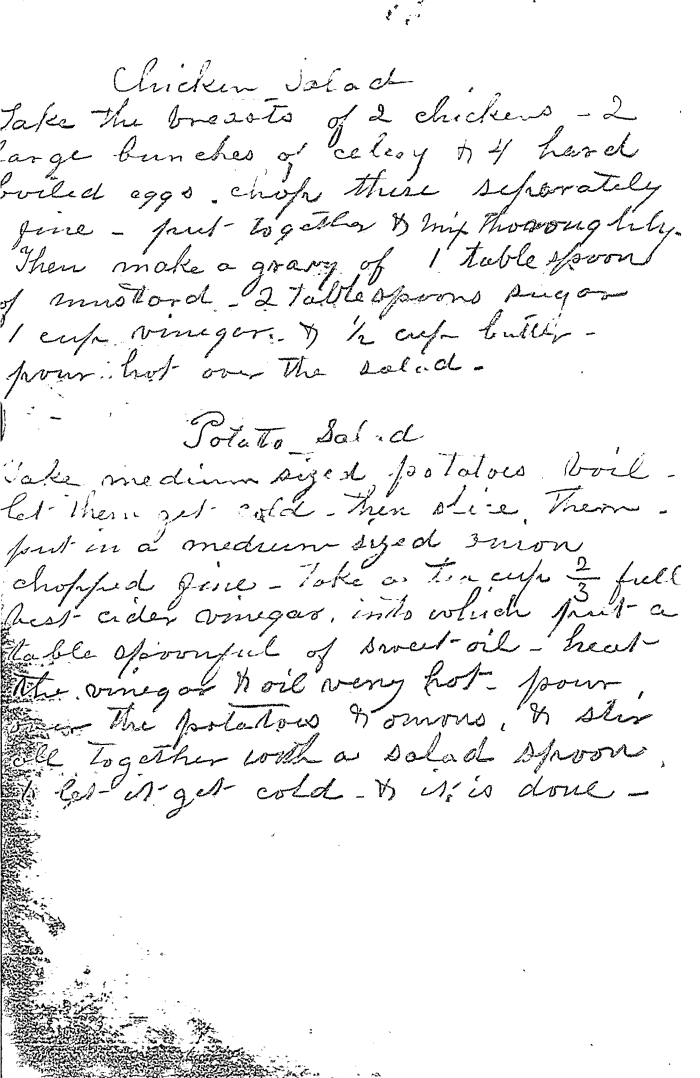 Chicken Salad
Take the breasts of 2 chickens - 2
large bunches of celery & 4 hard
boiled eggs. chop these seperately
fine - put together & mix thoroughly.
Then make a gravy of 1 table spoon
of mustard - 2 tablespoons sugar
1 cup vinegar. & 1/2 cup butter -
pour hot over the salad -
Potato Salad
Take medium sized potatoes boil -
let them get cold - then slice them -
put in a medium sized onion
chopped fine - Take a tea cup 2/3 full
best cider vinegar, into which put a
table spoonful of sweet oil - heat
the vinegar & oil very hot - pour
over the potatoes & onions, & stir
all together with a salad spoon,
& let it get cold - & it is done -